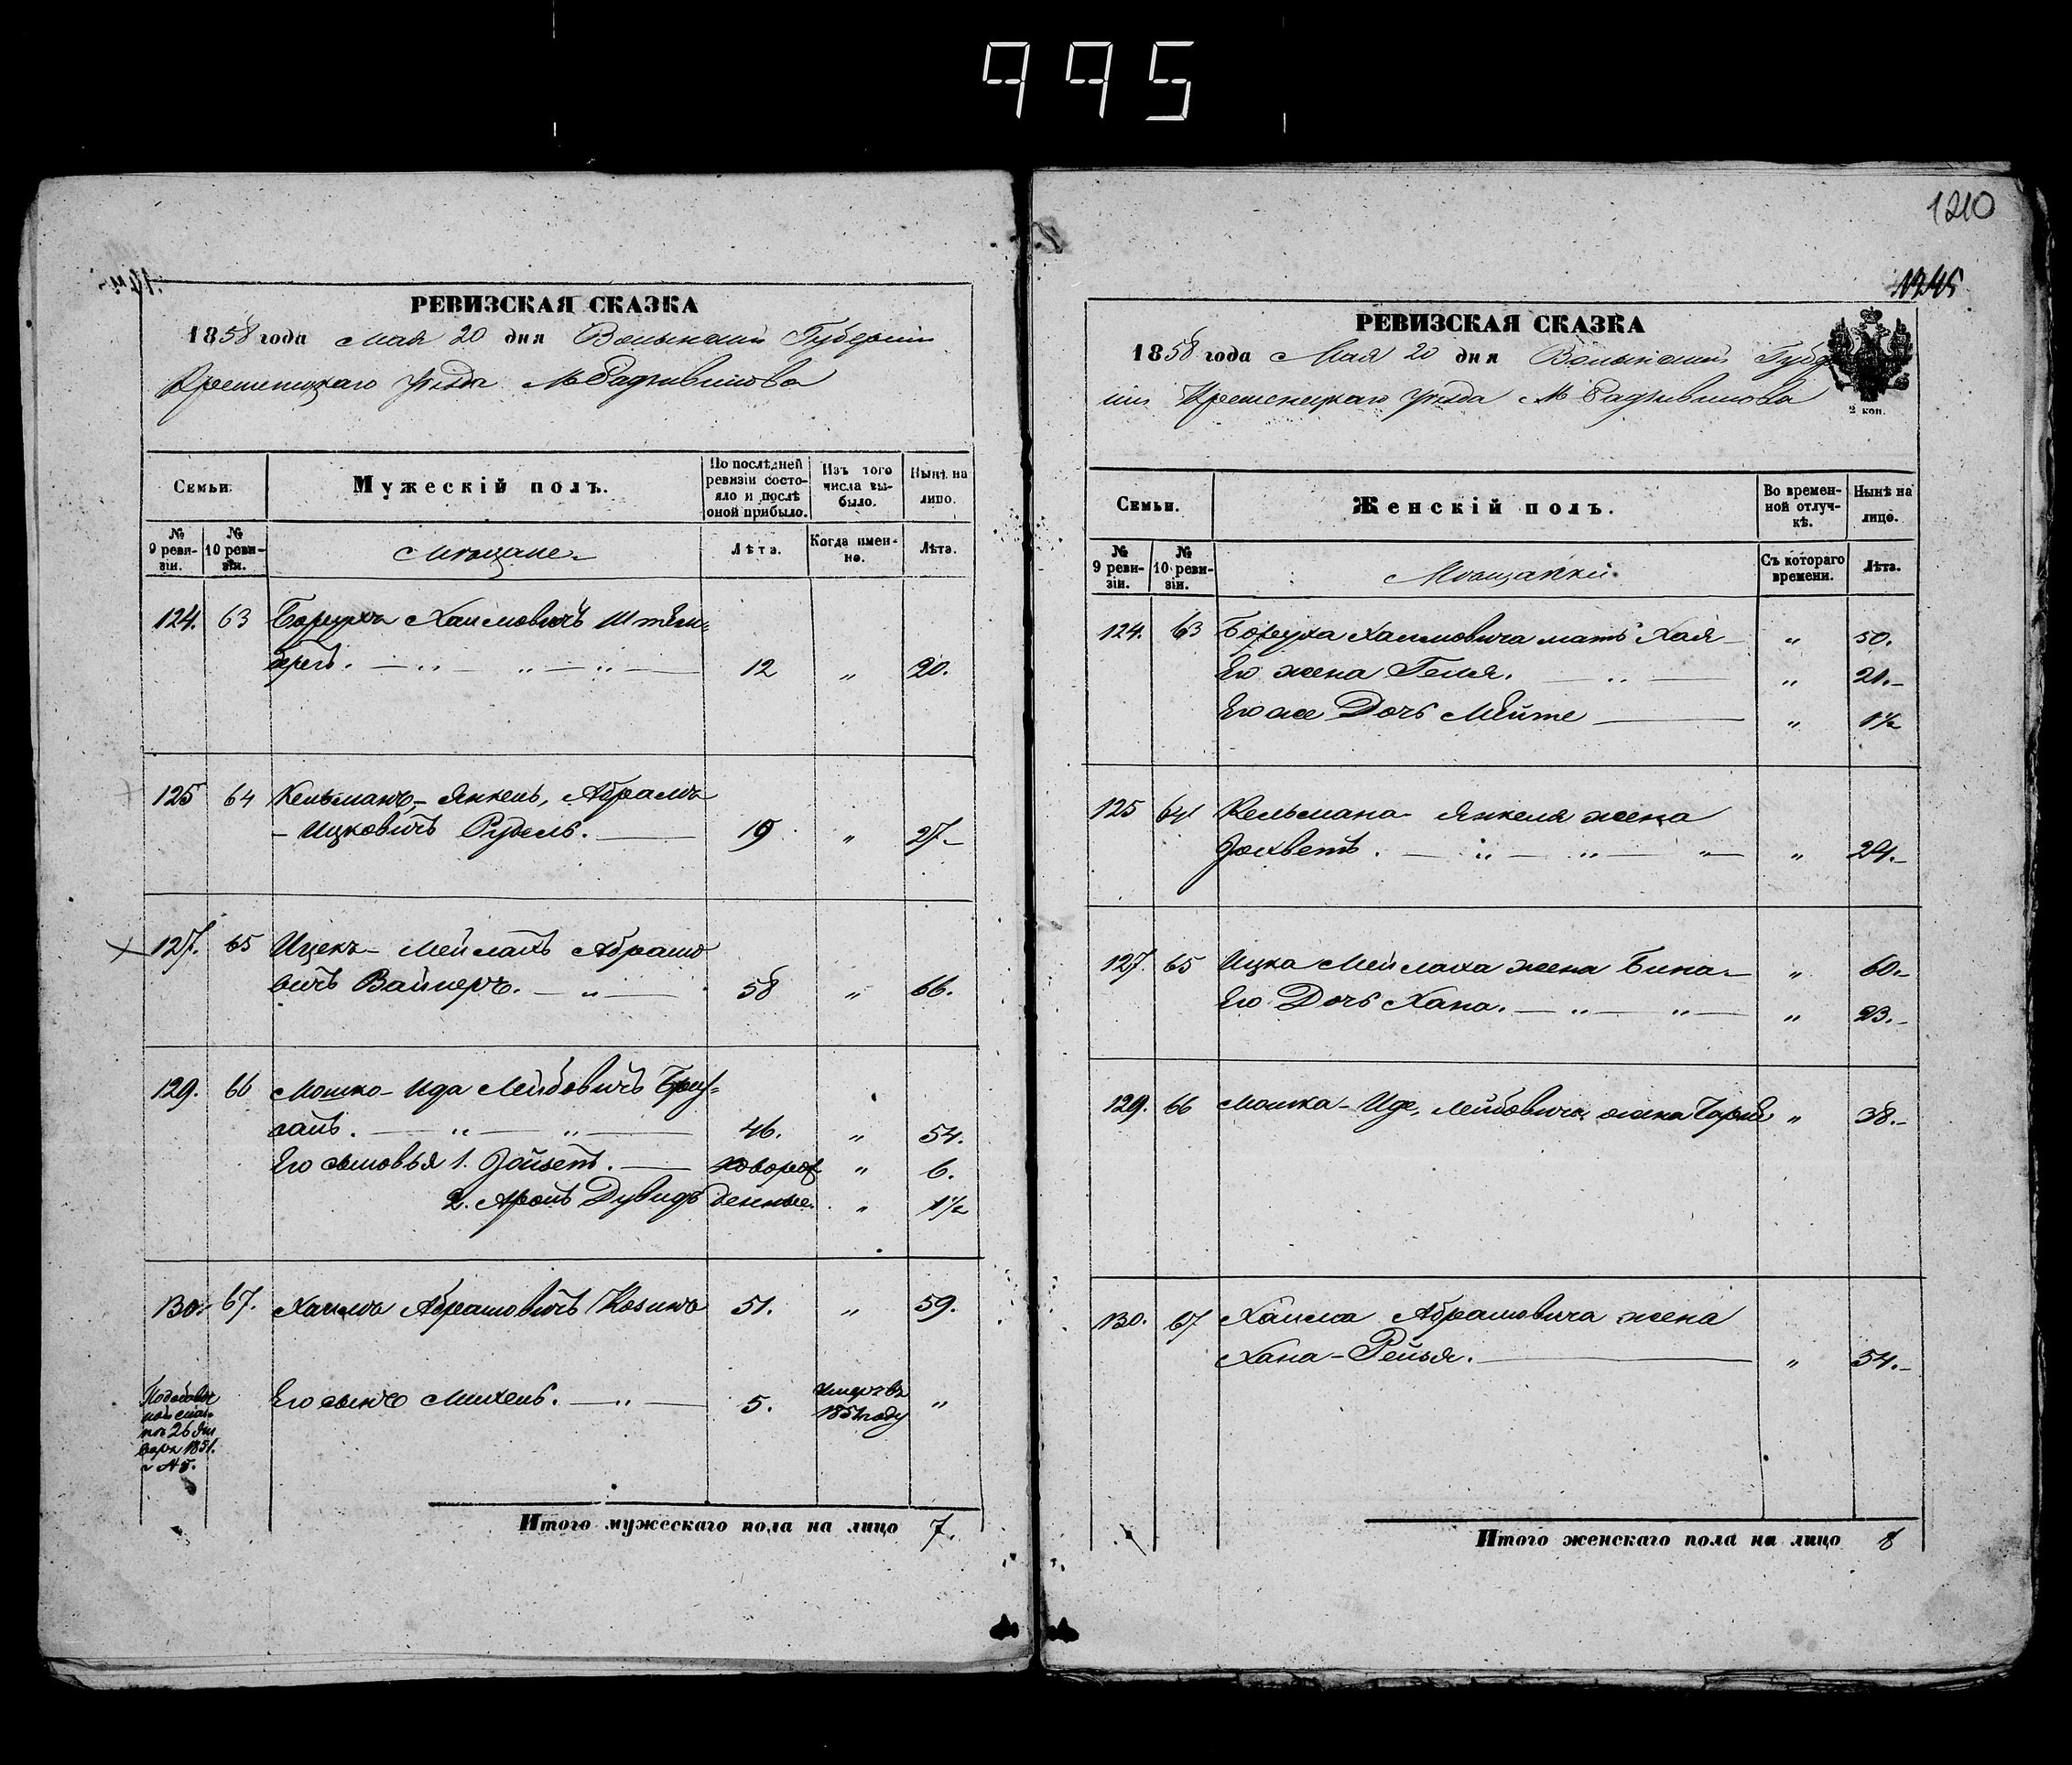 995
1210
1245
РЕВИЗСКАЯ СКАЗКА
1858 года Мая 20 дня Волынской Губерніи
Кременецкаго уѣзда М Радзивилова
Семьи.
Мужескій полъ.
По послѣдней ревизіи состояло и послѣ оной прибыло.
Изъ того числа выбыло.
Нынѣ на лицо.
№ 9 ревизіи.
№ 10 ревизіи.
Мѣщане
Лѣта.
Когда именно.
Лѣта.
124. 63 Борухъ Хаимовичъ Штейн=
бергъ. 12 " 20.
125 64 Кельманъ-Янкель, Абрамъ
- Ицковичъ Рудель. 19 " 27-
127. 65 Ицекъ-Мейлахъ Абрамо
вичъ Вайнеръ. 58 " 66.
129. 66 Мошко-Ида Лейбовичъ
46. " 54.
Его сыновья 1. Іойзепъ. новорож " 6.
2. Аронъ Дувидъ денные. " 1½
130. 67. Хаимъ Абрамовичъ Козинъ 51. " 59.
Его сынъ Михель. 5. умеръ въ "
году
26
1851.
№ 5.
Итого мужескаго пола на лицо 7.
РЕВИЗСКАЯ СКАЗКА
1858 года Мая 20 дня Волынской Губер
ніи Кременецкаго уѣзда М Радзивилова
2 коп.
Семьи.
Женскій полъ.
Во временной отлучкѣ.
Нынѣ на лицо.
№ 9 ревизіи.
№ 10 ревизіи.
Мѣщанки.
Съ котораго времени.
Лѣта.
124. 63 Боруха Хаимовича мать Хая " 50.
Его жена Геня. " 21.-
Его же Дочь Мейте " 1½
125 64 Кельмана-Янкеля жена
Іохветъ. " 24.-
127. 65 Ицка Мейлаха жена Бина- " 60.-
Его Дочь Хана. " 23.-
129. 66 Мошка-Иде, Лейбовича жена " 38.-
130. 67 Хаима Абрамовича жена
Хана-Рейзя. " 54.-
Итого женскаго пола на лицо 8